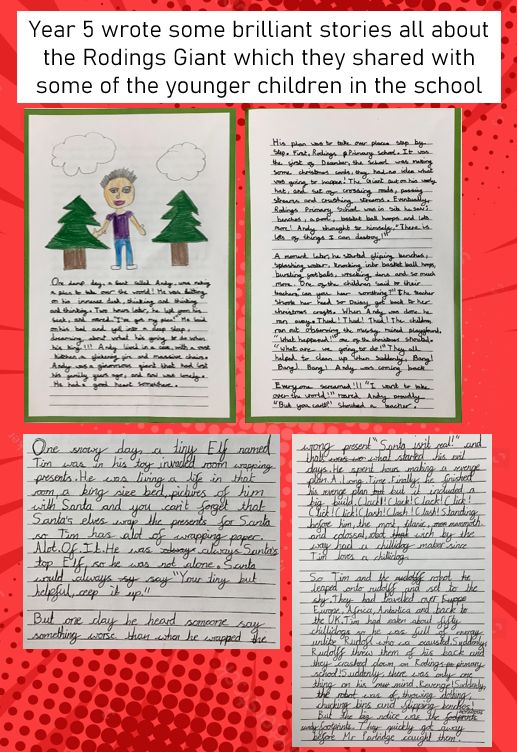 Year 5 wrote some brilliant stories all about
the Rodings Giant which they shared with
some of the younger children in the school
One damp day, a beast called Andy, was making
a plan to take over the world! He was sitting
on his immense desk, thinking and thinking
and thinking. Two hours later, he left from his
seat, and roared "I've got my plan!" He laid
on his bed and fell into a deep sleep,
dreaming about what his going to do when
his king!!! Andy lived in a cave with a vast
kitchen a flickering fire and massive chairs.
Andy was a ginormous giant that had lost
his family years ago, and now was lonely.
He had a good heart somewhere.
His plan was to take over places step by
step. First, Rodings Primary school. It was
the first of December, the school was making
some christmas cards, they had no idea what
was going to happen! The Giant put on his wooly
hat, and set off crossing roads, passing
streams and crushing streams. Eventually,
Rodings Primary School was in site he saw:
benches, a pond, basket ball hoops and lots
more! Andy thought to himself, "There is
lots of things I can destroy!"
A moment later, he started fliping benches,
splashing water, knocking into basket ball hoops,
bursting footballs, wrecking dens and so much
more. One of the children said to their
teacher, "can you hear something?" The teacher
shook her head so Daisy got back to her
christmas crafts. When Andy was done he
ran away. Thud! Thud! Thud! The children
ran out observing the messy, ruined playground,
"What happened!" one of the christmas shouted.
"What are we going to do!" They all
helped to clean up when suddenly, Bang!
Bang! Bang! Andy was coming back
Everyone screamed!!! "I want to take
over the world!!" roared Andy proudly
"But you can't!" Shouted a teacher.
One snowy day, a tiny Elf named
Tim was in his toy invaded room wrapping
presents. He was living a life in that
room, a king size bed, pictures of him
with Santa and you can't forget that
Santa's elves wrap the presents for Santa
so Tim has alot of wrapping paper.
Alot. Of. It. He was always Santa's
top Elf, so he was not alone. Santa
would always say "Your tiny but
helpful, ceep it up."
But one day he heard someone say
something worse than when he wrapped the
wrong present "Santa isn't real!" and
thats what started his evil
days. He spent hours making a revenge
plan. A. Long. Time. Finally, he finished
his revenge plan but it included a
big build. Clash! Clack! Clack! Click!
Click! Click! Clash! Clash! Clash! Standing
before him, the most, titanic, mammoth
and colossal, robot wich by the
way had a chillidog maker since
Tim loves a chillidog.
So Tim and the robot he
leaped onto rudolf and set to the
sky. They had travelled over
Europe, Africa, Antartica and back to
the UK. Tim had eaten about fifty
chillidogs so he was full of energy
unlike Rudolf who wa exausted. Suddenly,
Rudolf threw them of his back and
they crashed down on Rodings primary
school. Suddenly there was only one
thing on his mind. Revenge! Suddenly,
the robot was of, throwing clothing,
chucking bins and flipping benches!
But the big notice was the
footprints. They quickly got away
before Mr Partridge caught them!